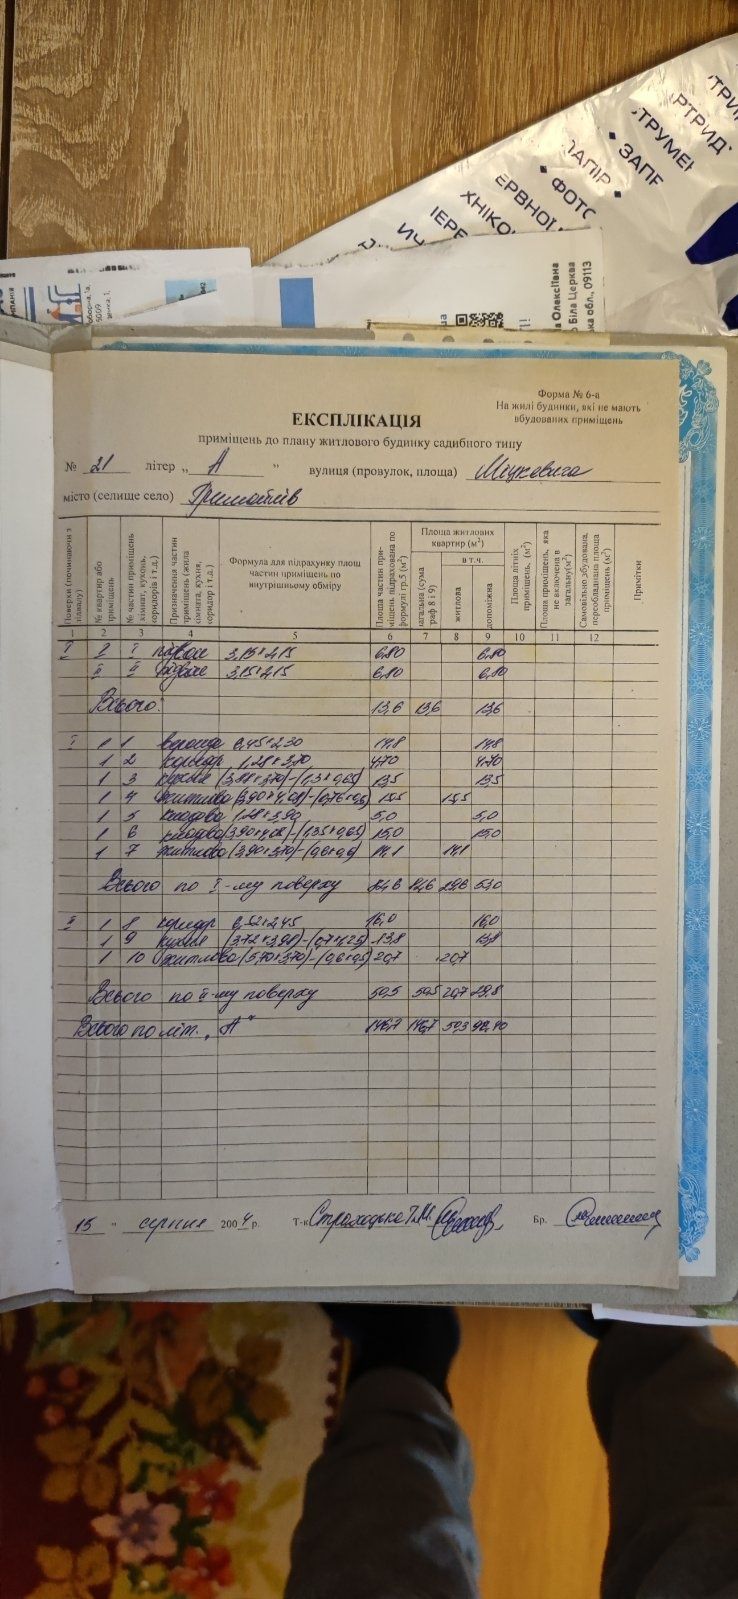 ТРИ
РТРИД
ТРУМЕН
ЗАПР
ПАПІР
ФОТО
ЕРВНОЇ
ХНІКО
ІЕРЕ
а Олексіївна
о Біла Церква
ка обл., 09113
Форма № 6-а
На жилі будинки, які не мають
вбудованих приміщень
ЕКСПЛІКАЦІЯ
приміщень до плану житлового будинку садибного типу
№ 21 літер „ А “ вулиця (провулок, площа) Міцкевича
місто (селище село) Гримайлів
Поверхи (починаючи з підвалу)
№ квартир або приміщень
№ частин приміщень кімнат, кухонь, коридорів і т.д.)
Призначення частин приміщень (жила кімната, кухня, коридор і т.д.)
Формула для підрахунку площ частин приміщень по внутрішньому обміру
Площа частин приміщень підрахована по формулі гр.5 (м²)
Площа житлових квартир (м²)
загальна (сума граф 8 і 9)
в т.ч.
житлова
допоміжна
Площа літніх приміщень, (м²)
Площа приміщень, яка не включена в загальну(м²)
Самовільно збудована, переобладнана площа приміщень (м²)
Примітки
1 2 3 4 5 6 7 8 9 10 11 12
І І підвал 3,15×2,15 6,80 6,80
ІІ ІІ підвал 3,15×2,15 6,80 6,80
Всього: 13,6 13,6 13,6
І 1 1 веранда 6,45×2,30 14,8 14,8
1 2 коридор 1,28×3,70 4,70 4,70
1 3 кухня 13,5 13,5
1 4 житлова 15,5 15,5
1 5 кладова 1,28×3,90 5,0 5,0
1 6 кладова 15,0 15,0
1 7 житлова 14,1 14,1
Всього по І-му поверху 82,6 82,6 29,6 53,0
ІІ 1 8 коридор 6,52×2,45 16,0 16,0
1 9 кухня 13,8 13,8
1 10 житлова 20,7 20,7
Всього по ІІ-му поверху 50,5 50,5 20,7 29,8
Всього по літ. „А“ 146,7 146,7 50,3 96,40
15 " серпня 2004 р. Т-к Страходько Т.М. Бр.